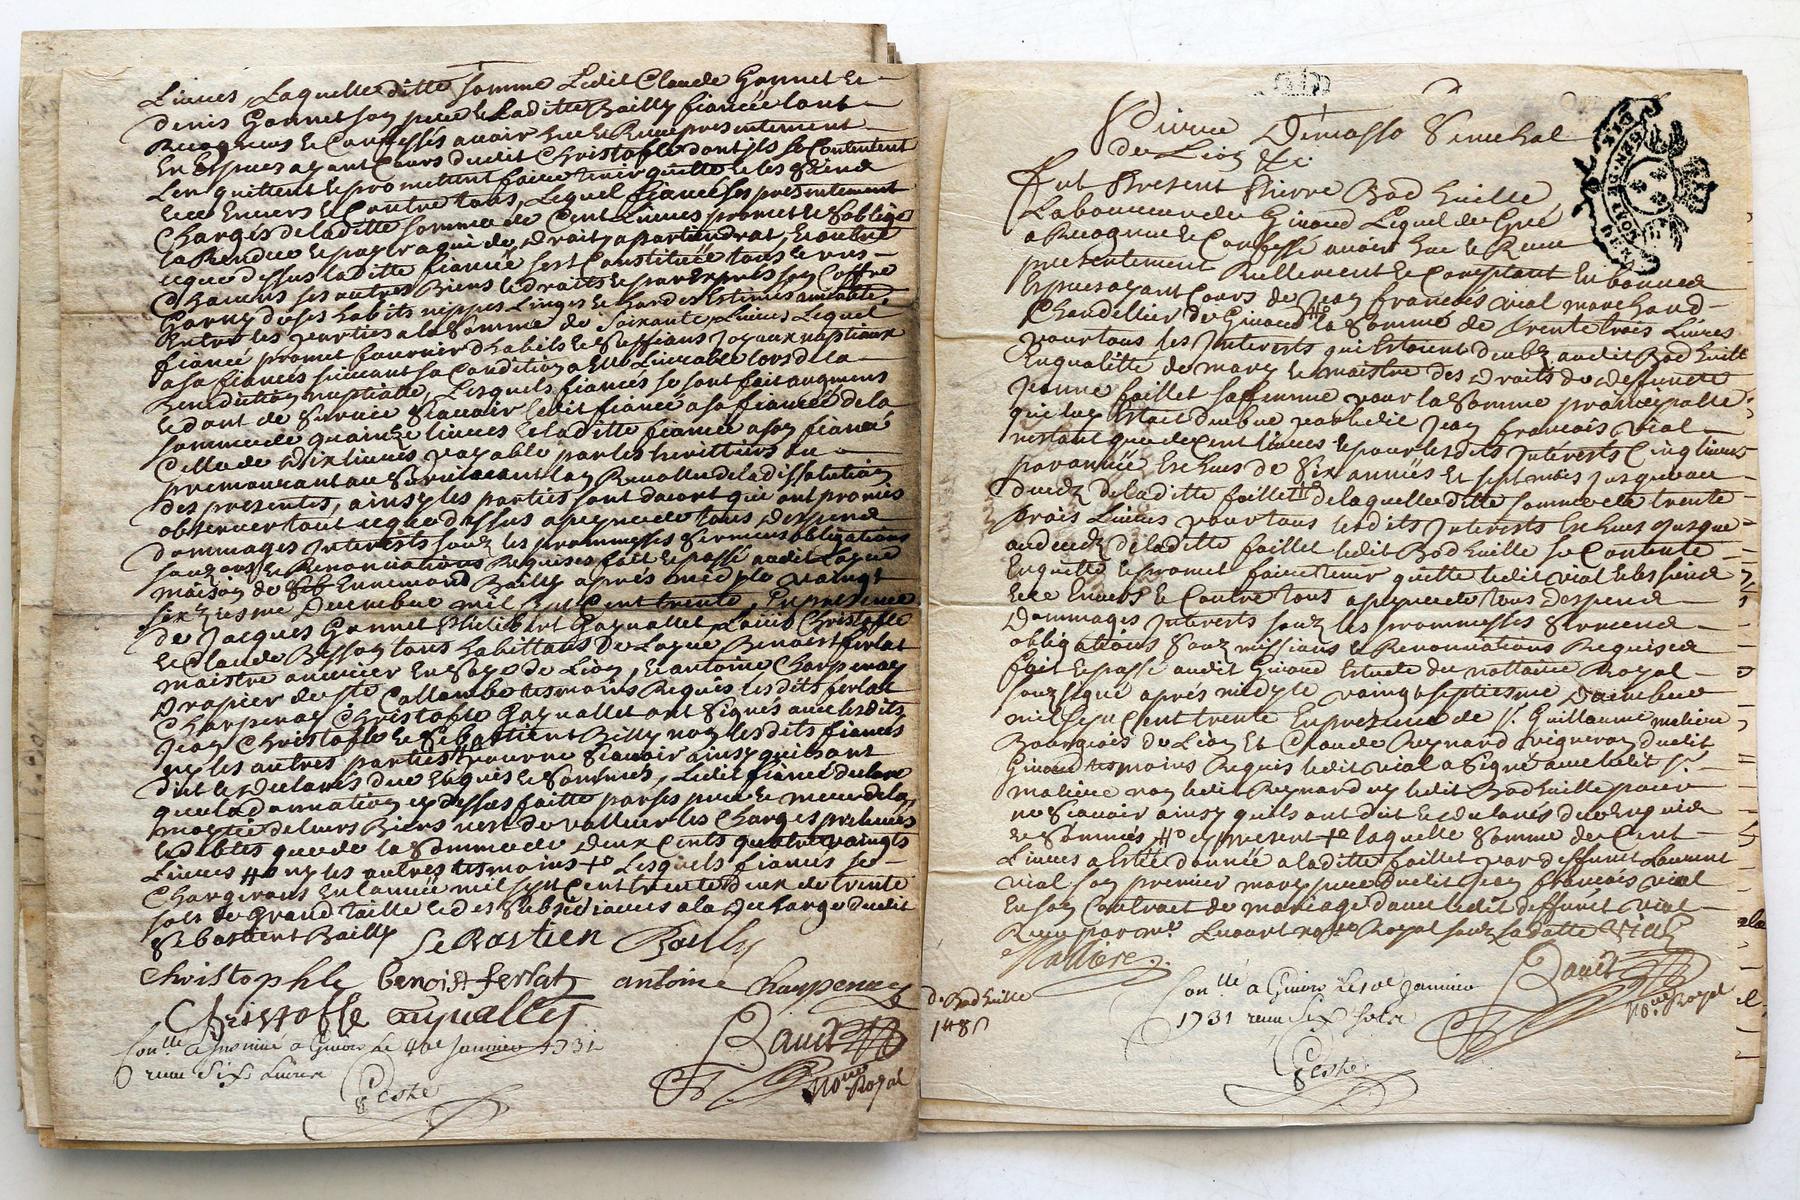 Livres, Laquelle ditte somme Ledit Claude Gonnet et
Denis Gonnet son pere et Laditte Bailly fiancée l'ont
Recognus et Confessés avoir heu et Receu presentement
En Especes ayant Cours dudit Christofle dont ils se Contentent
L'en quittent et promettent faire tenir quitte et les Siens
de Envers et Contre tous, Lequel fiancé les presentement
Chargés de laditte somme de Cent Livres promet et s'oblige
la Rendre et payer a qui de droit apartiendrat, et outre
ce que dessus laditte fiancée s'est Constituée tous le res-
ses autres Biens et droits et par exprès son Coffre
Garny de ses habits nippes Linges et hardes Estimés amiable
Entre les parties a la somme de Soixante Livres Lequel
fiancé promet fournir d'habits et joyaux nuptiaux
a sa fiancée suivant sa Condition lors de la
Benediction nuptialle, Lesquels fiancés se sont fait augment
et dont de Survie Scavoir ledit fiancé a sa fiancée de la
somme de quainze livres et laditte fiancée a son fiancé
Celle de dix livres payable par les herittiers du
premourant au Survivant de la dissolution
des presentes, ainsy les parties sont dacort qui ont promis
observer tout ce que dessus a peyne de tous despens
dommages Interests soubz les prommesses Sermens obligations
et Renontiations Requises fait et passé audit Layue
maison de Sr Ennemond Bailly après midy le vaingt
sixziesme Decembre mil sept Cent trente, En presence
de Jacques Gonnet Philibert Gaynallet Louis Christofle
et Claude Bessoy tous habittans De Layue Benoist ferlat
maistre ouvrier En soye de Lion, et antoine Charpenay
Drapier de Ste Collombe tesmoins Requis lesdits ferlat
Charpenay Christofle Gaynallet ont Signés avec lesdits
Jean Christofle et Sebastient Bailly non lesdits fiancés
ny les autres parties pour ne Scavoir ainsy quils ont
dit et declarés de ce Enquis et Sommés, Ledit fiancé declare
que la donnation cy dessus faitte par ses pere et mere de la
moytié de leurs Biens n'est de valleur les Charges prelevées
que de la somme de deux Cents quattre vaingts
Livres ny les autres tesmoins Lesquels fiancés se
Chargeront En lannée mil sept Cent trente deux de trente
sols de Grand taille et des Subsidiaires a la decharge dudit
Sebastient Bailly Sebastien Bailly
Christophle benoist ferlat antoine Charpenay
Christofle
Con.lle a Givors le 4oe Janvier 1731
receu Six Livres
Bauit
Nore Royal
Pierre Demasso Senechal
de Lion &c
Fut Present Pierre Bodhuille
Laboureur de Givord Lequel de Gré
a Recognu et Confessé avoir heu et Receu
presentement Reellement et Comptant En bonnes
Especes ayant Cours de Jean françois vial marchand
Chandellier de Givord la Somme de trente trois Livres
pour tous les Interests qui Estoient deubz audit Bodhuille
En qualitté de mary et maistre des droits de deffuncte
Jeanne faillet sa femme pour la Somme principalle
qui luy Estait deubue par ledit Jean françois vial
n'estant que de cent livres et pour lesdits Interests Cinq livres
par année Escheus de Six années et sept mois jusqu'au
decedz de laditte faillet de laquelle ditte somme de trente
trois Livres pour tous lesdits Interests Escheus jusque
au decedz de laditte faillet ledit Bodhuille se Contente
En quitte et promet faire tenir quitte ledit vial et les siens
de Envers et Contre tous a peyne de tous Despens
Dommages Interests soubz les prommesses Sermens
obligations Soubzmissions et Renontiations Requises
fait et passé audit Givord Estude du nottaire Royal
soubzsigné après midy le vaingt septiesme Decembre
mil sept Cent trente En presence de Sr Guillaume maliere
Bourgeois de Lion Et Claude Reynard vigneron dudit
Givord tesmoins Requis ledit vial a Signé avec ledit Sr
maliere non ledit Reynard ny ledit Bodhuille pour
ne Scavoir ainsy quils ont dit et declarés de ce Enquis
et Sommés present laquelle Somme de Cent
Livres a Estée donnée a laditte faillet par deffunt Laurent
vial son premier mary pere dudit Jean françois vial
En son Contract de mariage d'avec ledit deffunt vial
Receu par me nore Royal soubz la datte Vial
Maliere
de Bodhuille
Con.lle a Givors Le Janvier
1731 receu Six sols
Bauit
Nore Royal